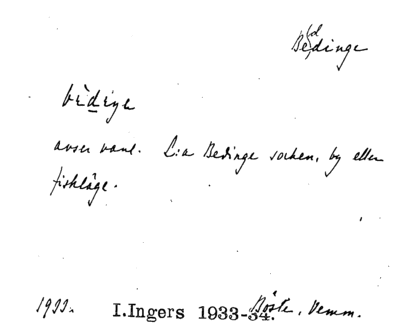 Beddinge
bèdiŋe
avser vanl. L:a Bedinge socken, by eller
fiskläge.
1933. I.Ingers 1933-34. Böste, Vemm.